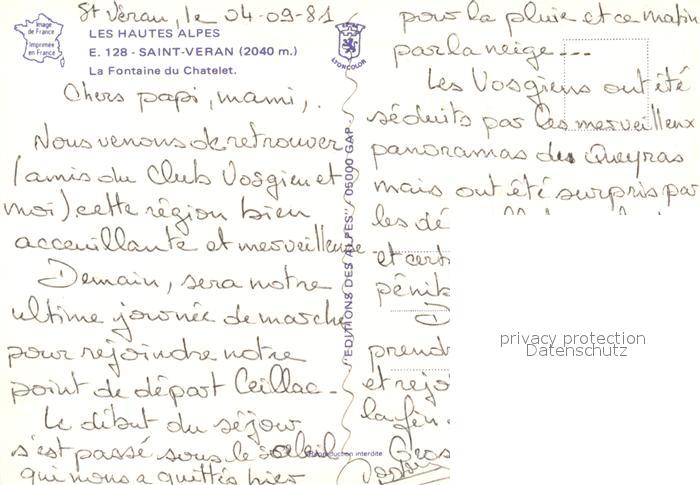 St Véran, le 04-09-81
Image de France
Imprimée en France
LES HAUTES ALPES
E. 128 - SAINT-VERAN (2040 m.)
La Fontaine du Chatelet.
LYONCOLOR
Chers papi, mami,
Nous venons de retrouver
(amis du Club Vosgien et
moi) cette région bien
acceuillante et merveilleuse
Demain, sera notre
ultime journée de marche
pour rejoindre notre
point de départ Ceillac -
Le début du séjour
s'est passé sous le soleil
qui nous a quittés hier
"EDITIONS DES ALPES" 05000 GAP
Reproduction interdite
pour la pluie et ce matin
par la neige ---
Les Vosgiens ont été
séduits par les merveilleux
panoramas du Queyras
mais ont été surpris par
les dé
et cert
pénib
D
prend
et rejo
la fin
Gros
privacy protection
Datenschutz